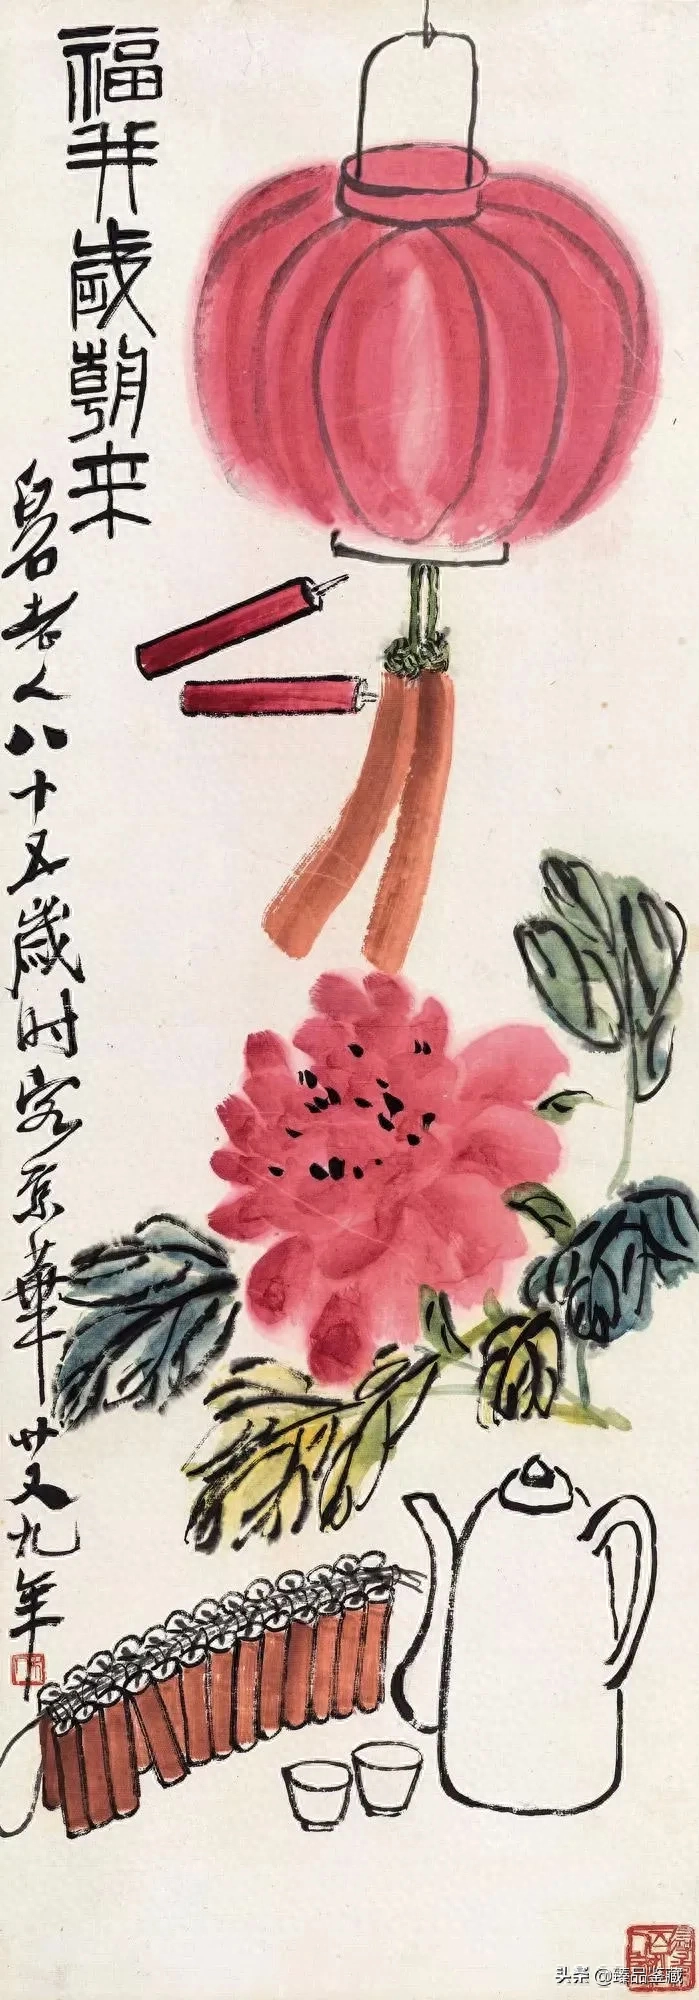 福并歲朝来
白石老人八十五歲时客京華廿又九年
头条 @臻品鉴藏